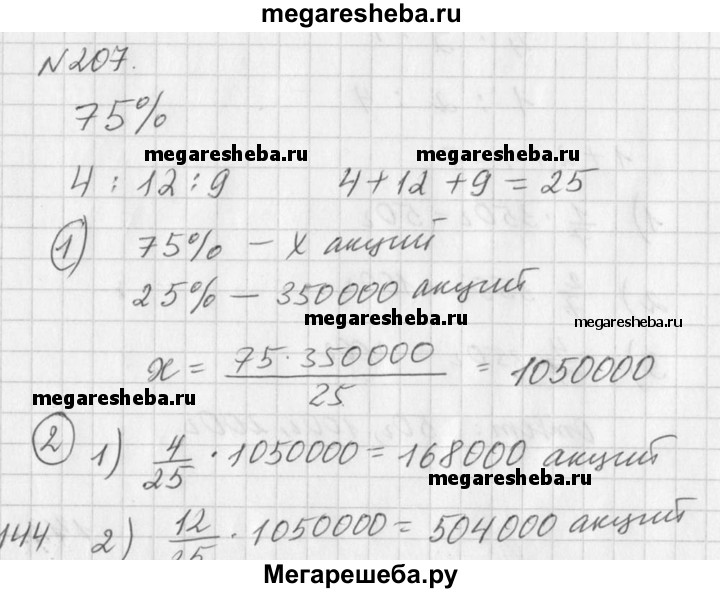 megaresheba.ru
N207.
75%
megaresheba.ru megaresheba.ru
4 : 12 : 9 4+12+9=25
1) 75% — x акций
megaresheba.ru
25% — 350000 акций
megaresheba.ru megaresheba.ru
x = 75·350000 / 25 = 1050000
megaresheba.ru
2 1) 4/25 · 1050000 = 168000 акций
megaresheba.ru
144 2) 12/25 · 1050000 = 504000 акций
Мегарешеба.ру